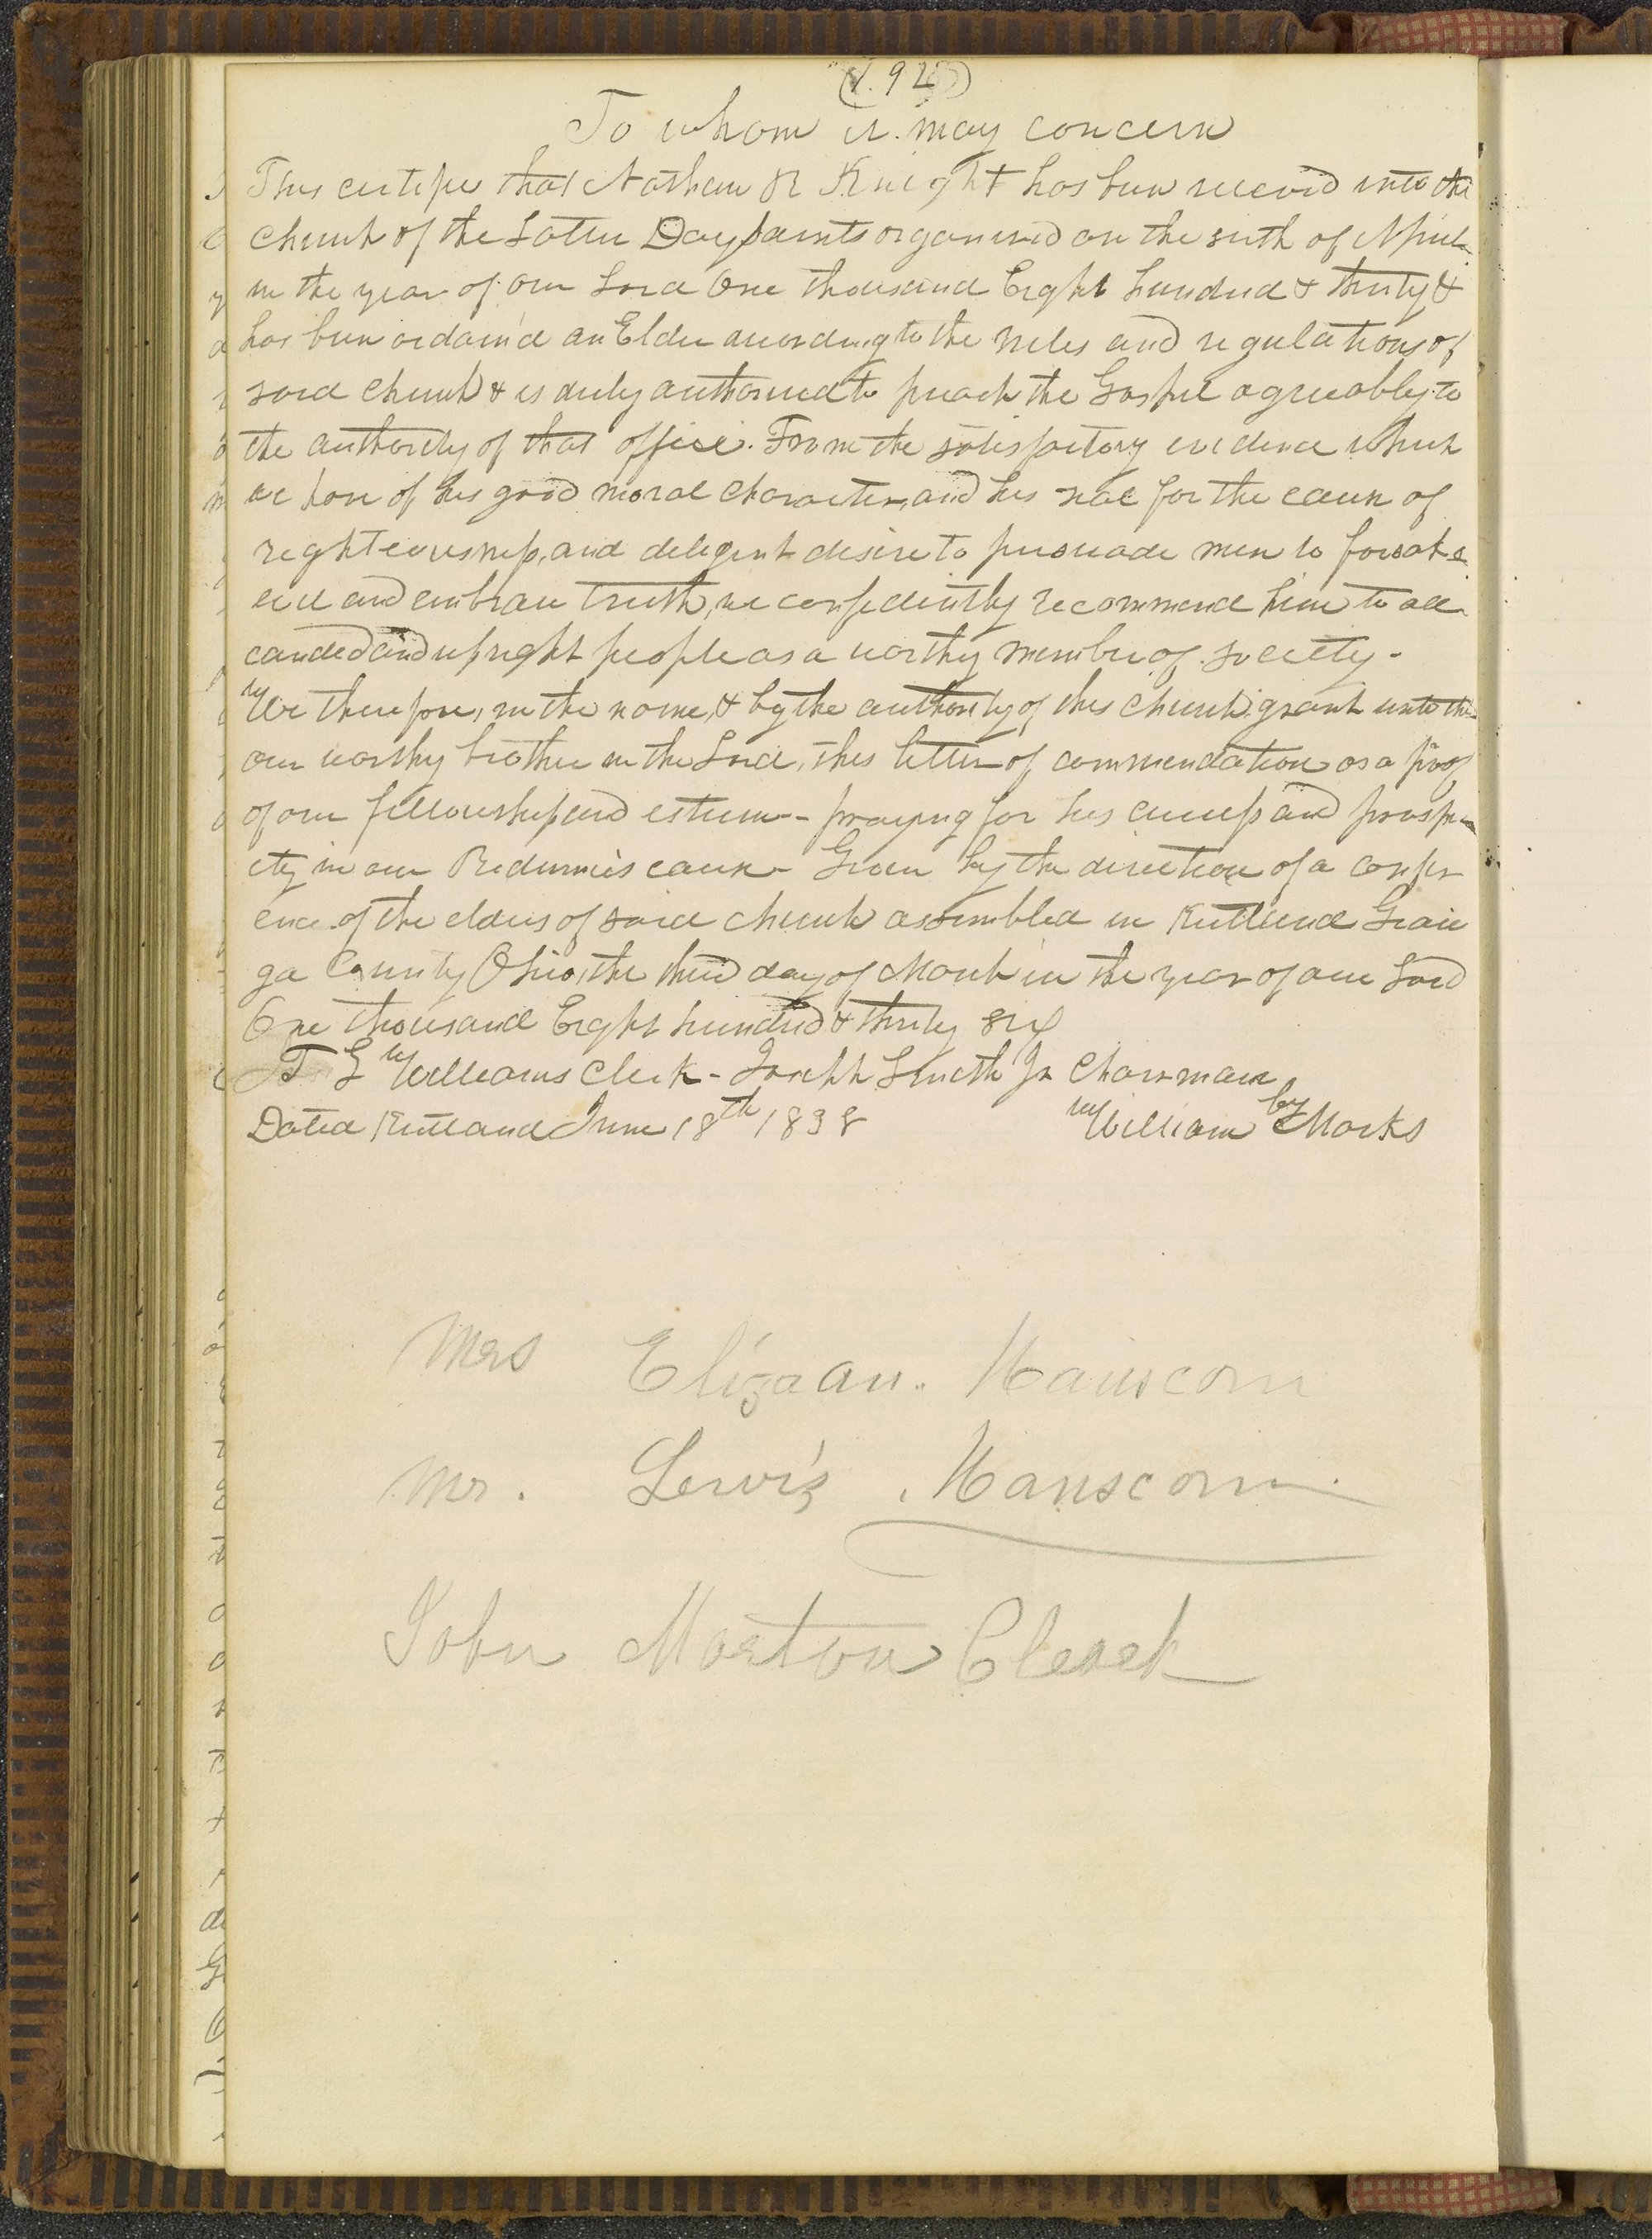 To whom it may concern
This certifies that Nathan K Knight has been received into the
church of the Latter Day Saints organized on the sixth of April
in the year of our Lord One thousand Eight hundred & thirty &
has been ordain'd an Elder according to the rules and regulations of
said church & is duly authorized to preach the Gospel agreeably to
the authority of that office. From the satisfactory evidence which
we have of his good moral character, and his zeal for the cause of
righteousness, and diligent desire to persuade men to forsake
evil and embrace truth, we confidently recommend him to all
candid and upright people as a worthy member of society -
We therefore, in the name, & by the authority of this church grant unto this
our worthy brother in the Lord, this letter of commendation as a proof
of our fellowship and esteem - praying for his success and prosper
ity in our Redeemer's cause - Given by the direction of a confer
ence of the elders of said church assembled in Kirtland Geau
ga County Ohio, the third day of March in the year of our Lord
One thousand Eight hundred & thirty six
F G Williams Clerk - Joseph Smith Jr Chairman
Dated Kirtland June 18th 1838 by William Marks
Mrs Elizaan. Hanscom
Mr. Lewis Hanscom
John Morton Clerek